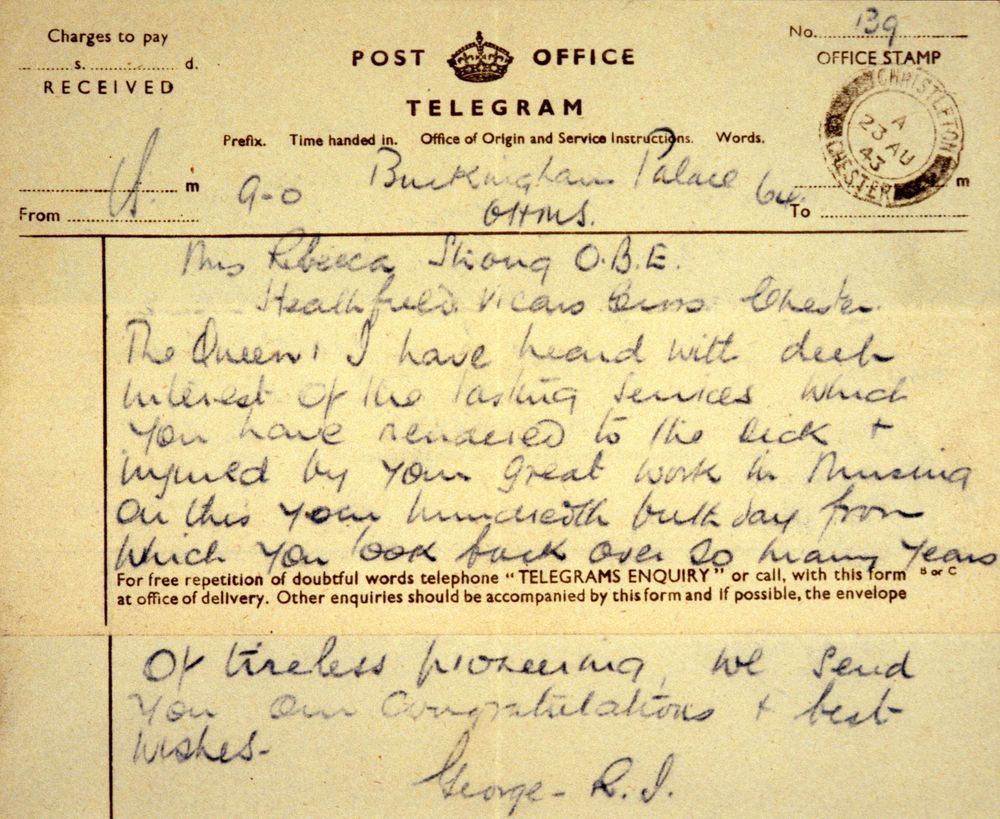 Charges to pay
s. d.
RECEIVED
POST OFFICE
TELEGRAM
No. 139
OFFICE STAMP
CHRISTLETON
A
23 AU
43
CHESTER
Prefix. Time handed in. Office of Origin and Service Instructions. Words.
m 9-0 Buckingham Palace 64 m
From OHMS. To
Mrs Rebecca Strong O.B.E.
Heathfield Vicars Cross Chester.
The Queen & I have heard with deep
interest of the lasting services which
you have rendered to the sick +
injured by your great work in nursing
On this your hundredth birthday from
which you look back over so many years
For free repetition of doubtful words telephone "TELEGRAMS ENQUIRY" or call, with this form B or C
at office of delivery. Other enquiries should be accompanied by this form and if possible, the envelope
Of tireless pioneering, we send
you our Congratulations + best
wishes-
George- R.I.